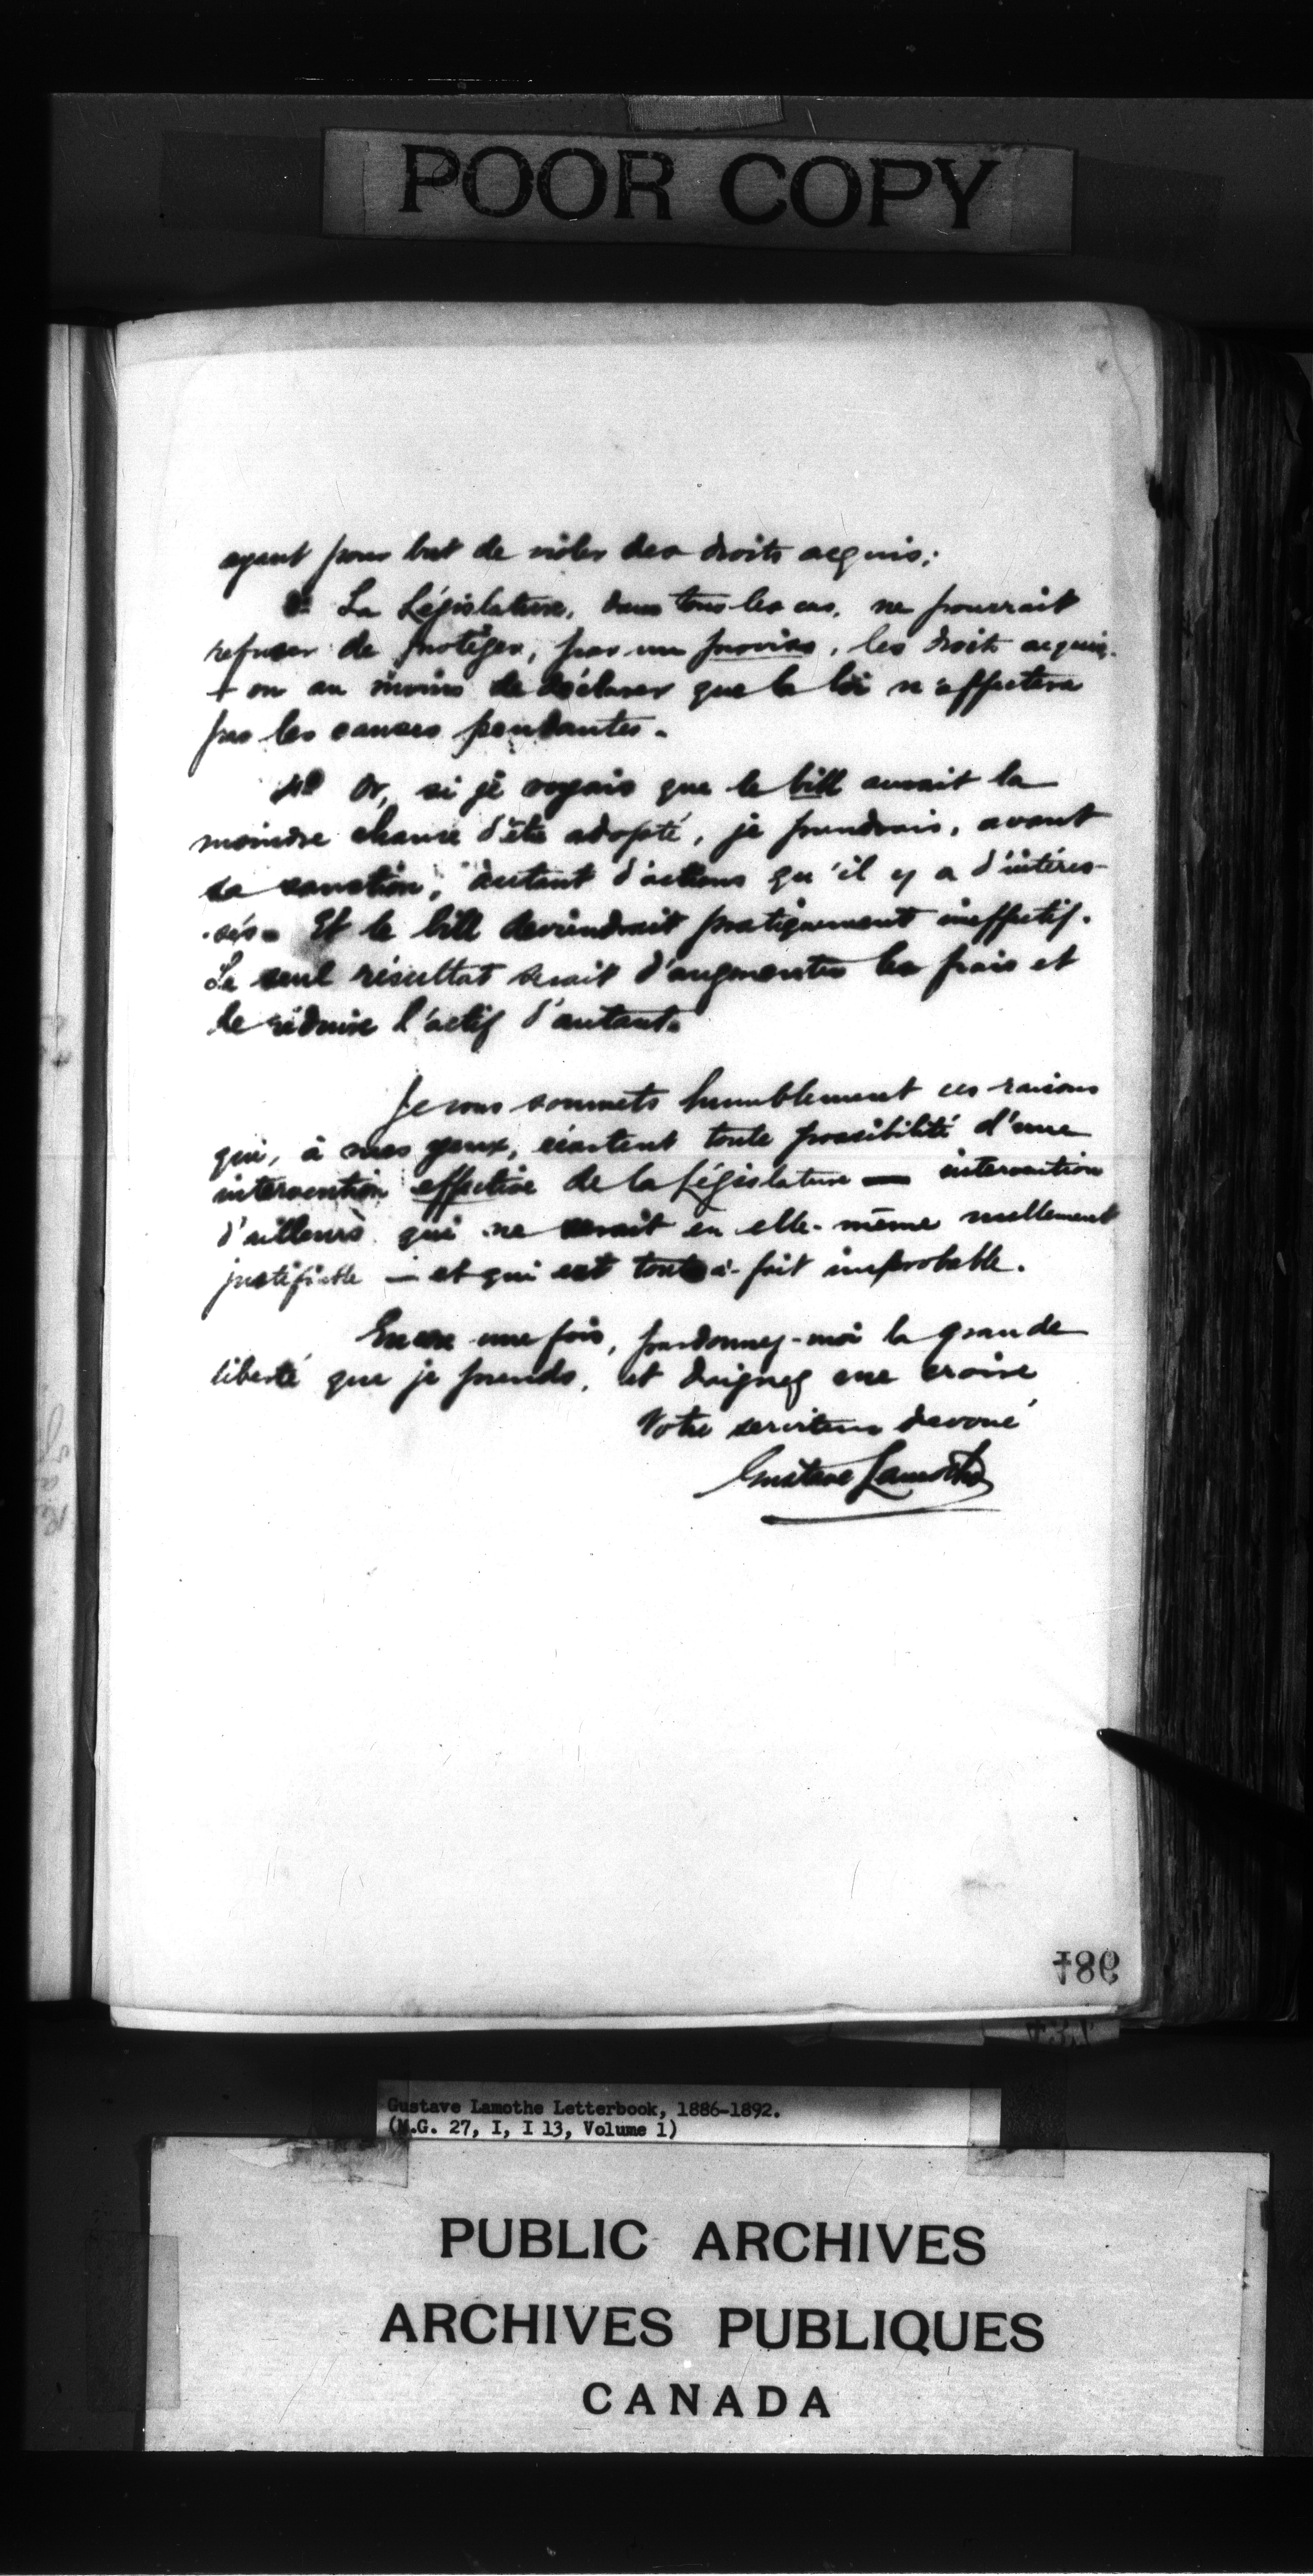 POOR COPY
ayant pour but de violer des droits acquis;
3º La Législature, dans tous les cas, ne pourrait
refuser de protéger, par un proviso, les droits acquis.
+ ou au moins de déclarer que la loi n'affectera
pas les causes pendantes.
4º Or, si je voyais que le bill aurait la
moindre chance d'être adopté, je prendrais, avant
sa sanction, autant d'actions qu'il y a d'intéres-
sés. Et le bill deviendrait pratiquement ineffectif.
Le seul résultat serait d'augmenter les frais et
de réduire l'actif d'autant.
Je vous soumets humblement ces raisons
qui, à mes yeux, écartent toute possibilité d'une
intervention effective de la Législature — intervention
d'ailleurs qui ne serait en elle-même nullement
justifiable — et qui est tout à-fait improbable.
Encore une fois, pardonnez-moi la grande
liberté que je prends, et daignez me croire
Votre serviteur dévoué
Gustave Lamothe
786
Gustave Lamothe Letterbook, 1886-1892.
(M.G. 27, I, I 13, Volume 1)
PUBLIC ARCHIVES
ARCHIVES PUBLIQUES
CANADA